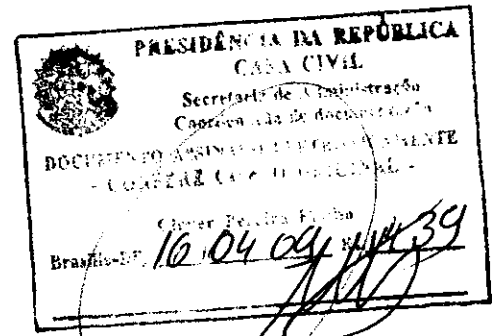 PRESIDÊNCIA DA REPÚBLICA
CASA CIVIL
Secretaria de Administração
Coordenação de documentação
DOCUMENTO ASSINADO ELETRONICAMENTE
- CONFERE COM O ORIGINAL -
Pereira
Brasília-DF, 16 04 09 14:39